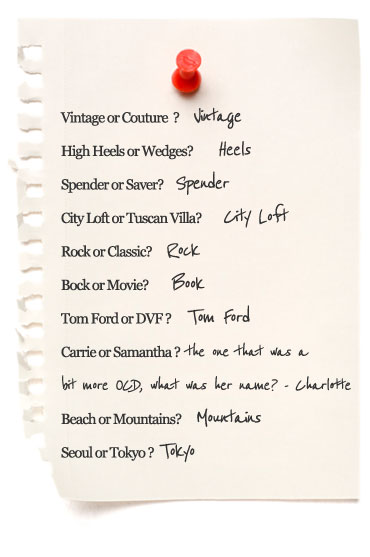 Vintage or Couture ? Vintage
High Heels or Wedges? Heels
Spender or Saver? Spender
City Loft or Tuscan Villa? City Loft
Rock or Classic? Rock
Bock or Movie? Book
Tom Ford or DVF ? Tom Ford
Carrie or Samantha ? the one that was a
bit more OCD, what was her name? - Charlotte
Beach or Mountains? Mountains
Seoul or Tokyo ? Tokyo